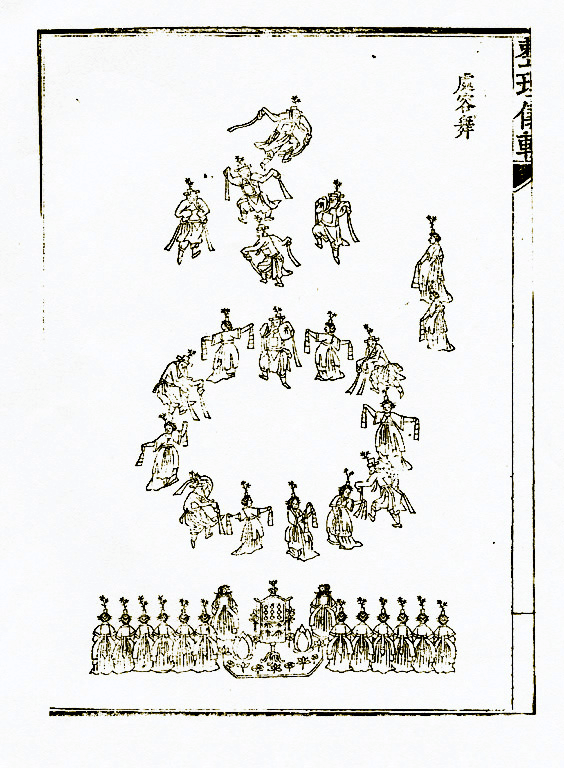 整理儀軌
處容舞